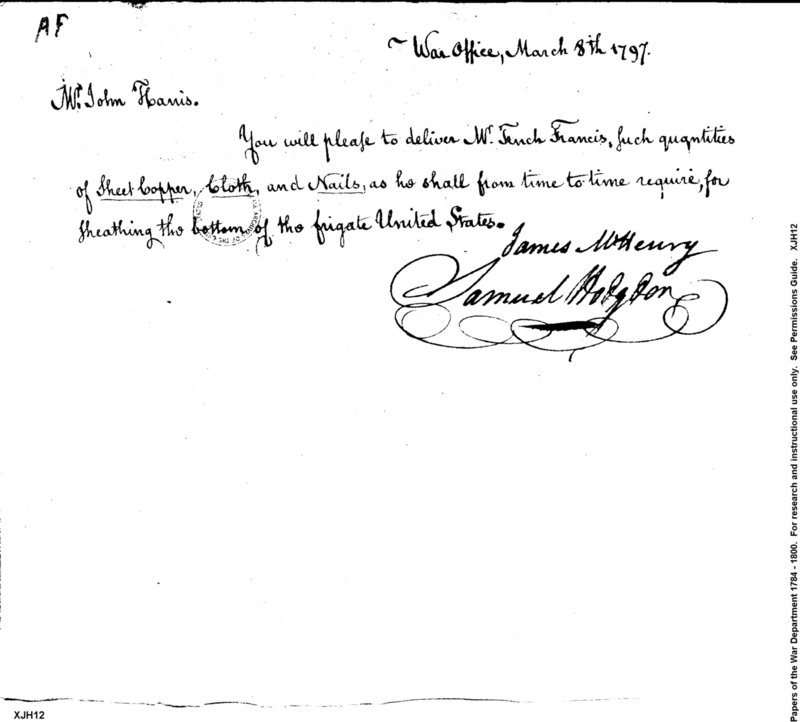 AF
War Office, March 8th 1797.
Mr. John Harris.
You will please to deliver Mr. Tench Francis, such quantities
of Sheet Copper, Cloth, and Nails, as he shall from time to time require, for
sheathing the bottom of the frigate United States.
James McHenry
Samuel Hodgdon
Papers of the War Department 1784 - 1800. For research and instructional use only. See Permissions Guide. XJH12
XJH12